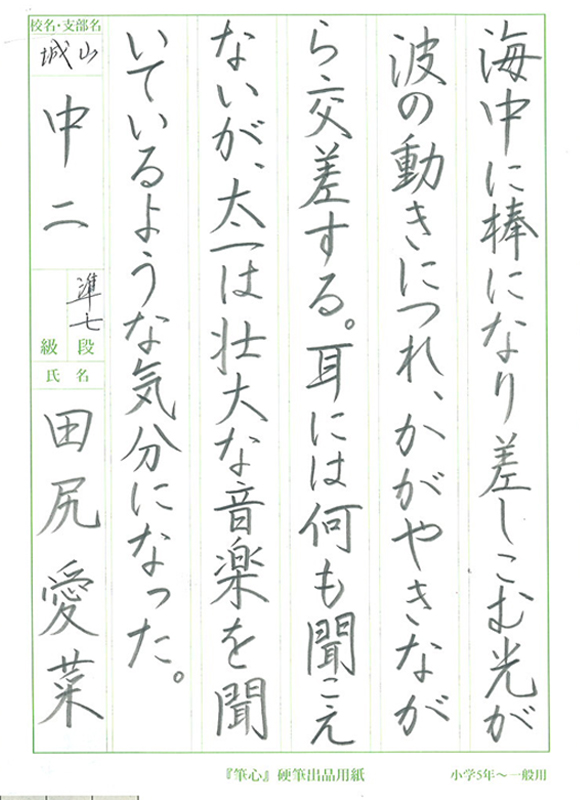 海中に棒になり差しこむ光が
波の動きにつれ、かがやきなが
ら交差する。耳には何も聞こえ
ないが、太一は壮大な音楽を聞
いているような気分になった。
校名・支部名
城山
中二
準七
段
級
氏名
田尻愛菜
『筆心』硬筆出品用紙
小学5年～一般用